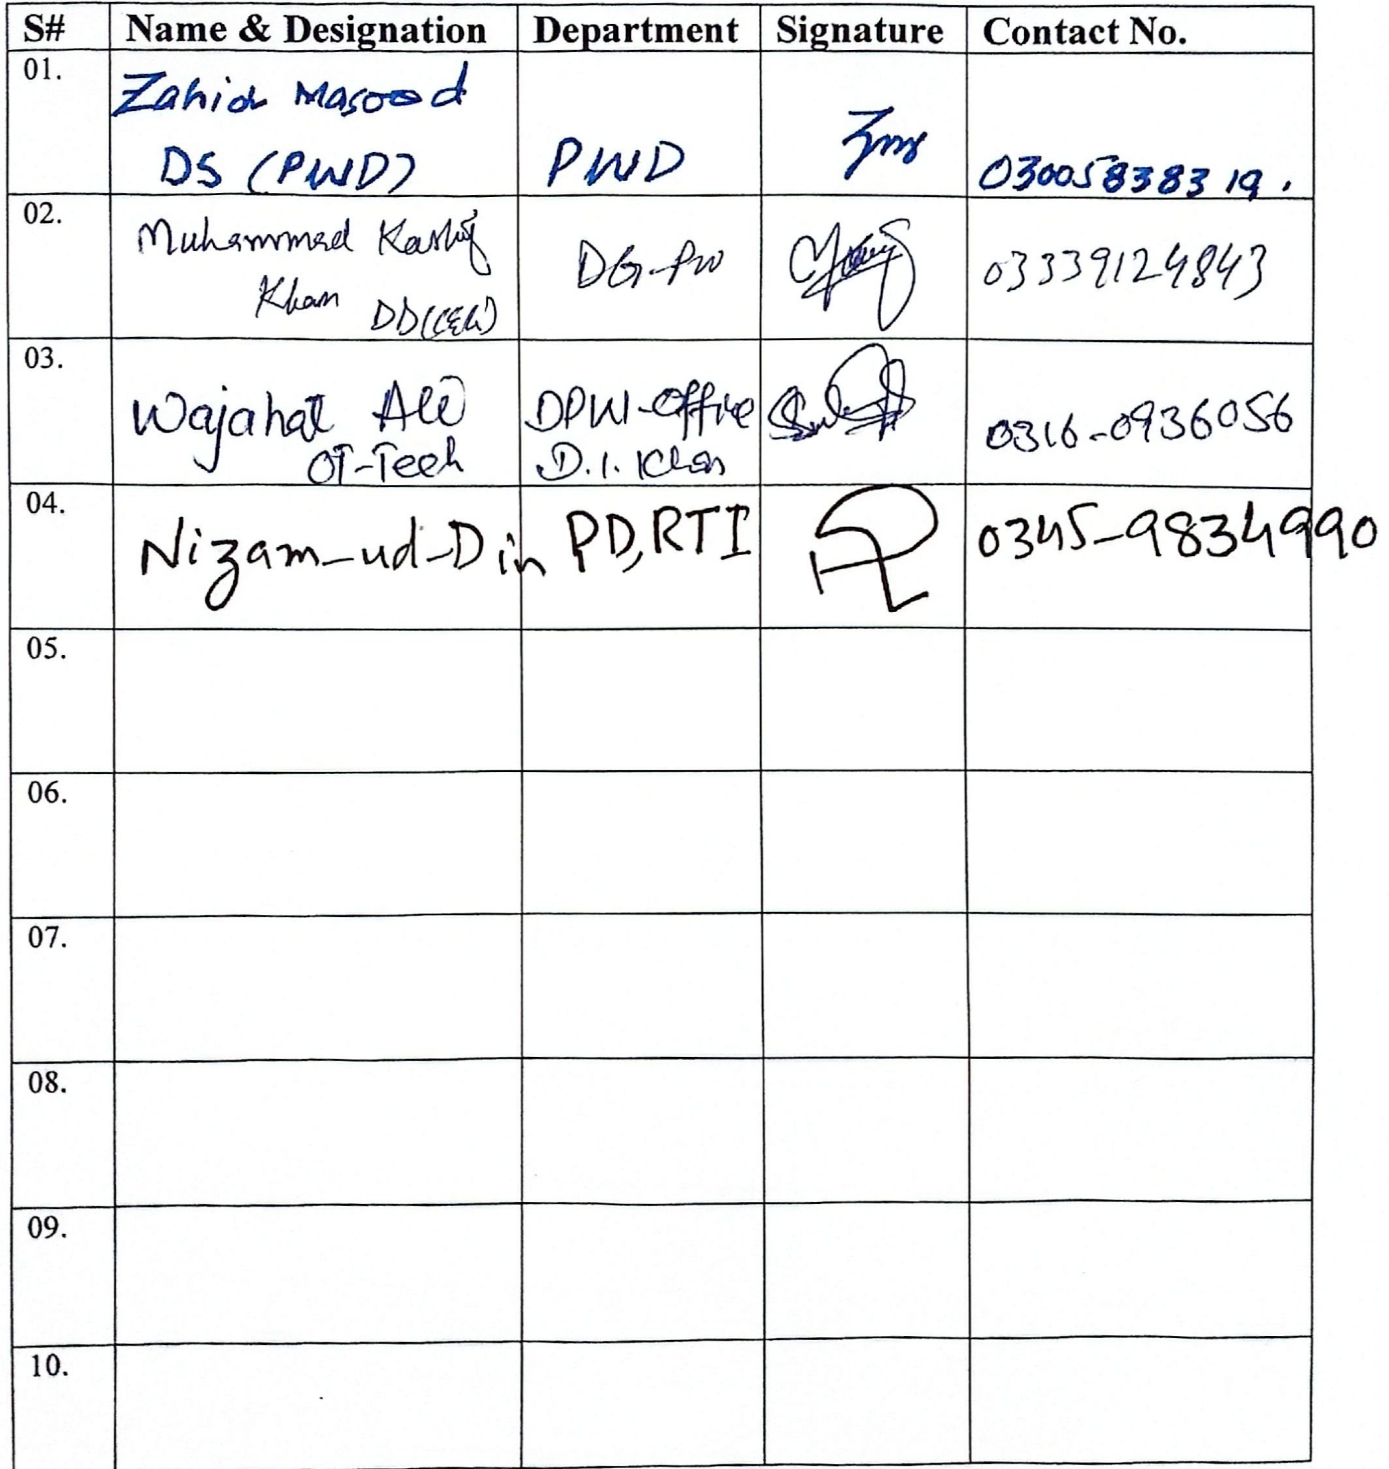 S# Name & Designation Department Signature Contact No.
01. Zahid Masood
DS (PWD) PWD 03005838319.
02. Muhammad Kashif
Khan DG-PW 03339124843
03. Wajahat Ali DPW-Office 0316-0936056
OT-Tech D.I. Khan
04. Nizam-ud-Din PD,RTI 0345-9834990
05.
06.
07.
08.
09.
10.